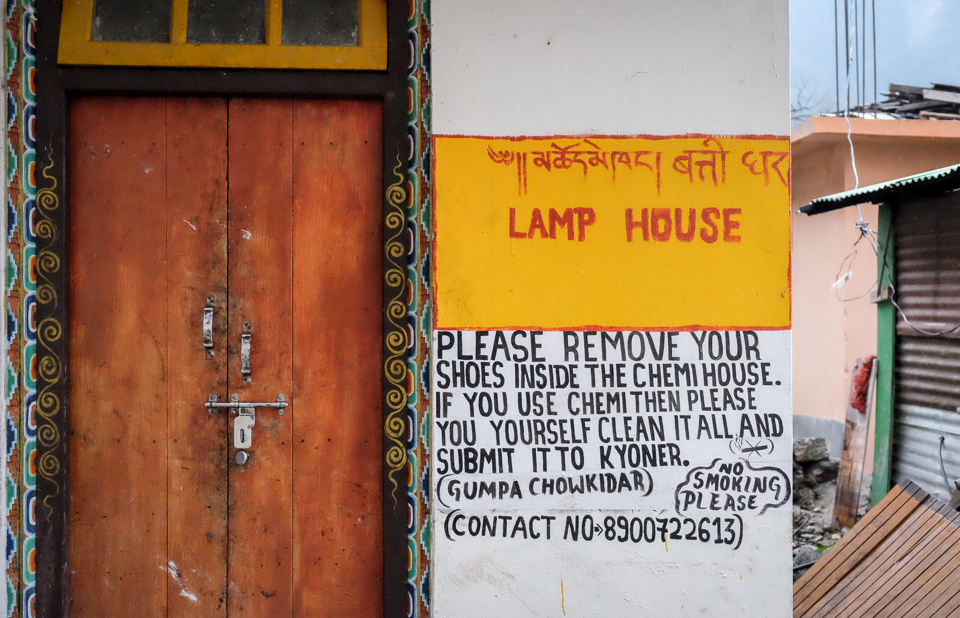 ༄༅།། མཆོད་མེ་ཁང་། बत्ती घर
LAMP HOUSE
PLEASE REMOVE YOUR
SHOES INSIDE THE CHEMI HOUSE.
IF YOU USE CHEMI THEN PLEASE
YOU YOURSELF CLEAN IT ALL AND
SUBMIT IT TO KYONER.
(GUMPA CHOWKIDAR)
NO
SMOKING
PLEASE
(CONTACT NO→8900722613)